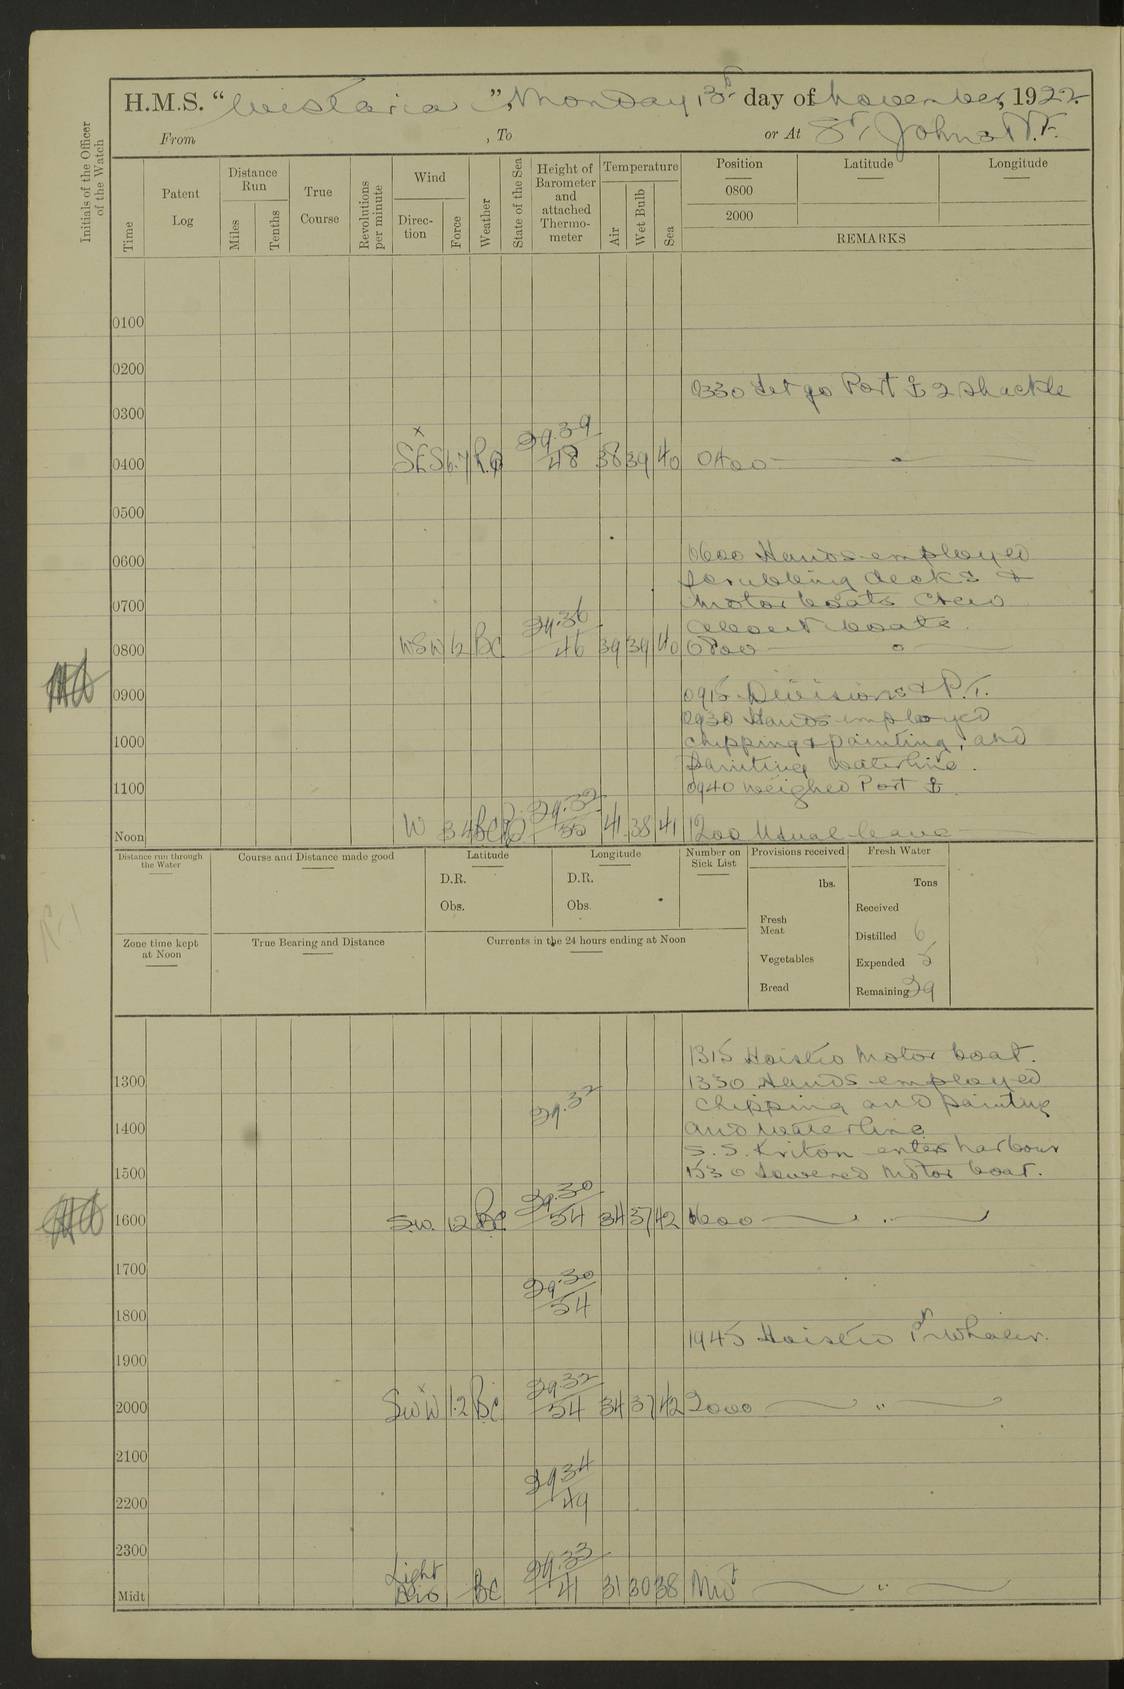 H.M.S. "Wistaria", Monday 13th day of November, 1922
From , To or At St Johns N.F.
Initials of the Officer of the Watch
Time
Patent Log
Distance Run
Miles
Tenths
True Course
Revolutions per minute
Wind
Direction
Force
Weather
State of the Sea
Height of Barometer and attached Thermometer
Temperature
Air
Wet Bulb
Sea
Position Latitude Longitude
0800
2000
REMARKS
0100
0200
0330 Let go Port ⚓ 2 shackle
0300
0400 SES 6.7 R.Q 29.39/48 38 39 40 0400 "
0500
0600
0600 Hands employed
scrubbing decks &
motor boats crew
about boats.
0700
0800 WSW 12 BC 29.36/46 39 39 40 0800 "
0915 Divisions & P.T.
0900
0930 Hands employed
chipping & painting, and
painting waterline.
1000
0940 weighed Port ⚓.
1100
Noon W 34 BC 29.32/55 41 38 41 1200 Usual leave
Distance run through the Water
Course and Distance made good
Latitude
D.R.
Obs.
Longitude
D.R.
Obs.
Number on Sick List
Provisions received
lbs.
Fresh Meat
Vegetables
Bread
Fresh Water
Tons
Received
Distilled 6
Expended 5
Remaining 29
Zone time kept at Noon
True Bearing and Distance
Currents in the 24 hours ending at Noon
1315 Hoisted Motor boat.
1300
1330 Hands employed
chipping and painting
and waterline
29.32
1400
S.S. Kriton enters harbour
1530 Lowered Motor boat.
1500
1600 S.W. 12 BC 29.30/54 34 37 42 1600 "
1700
29.30/54
1800
1945 Hoisted Pt Whaler.
1900
2000 SWxW 1.2 BC 29.32/54 34 37 42 2000 "
2100
29.34/49
2200
2300
Midt Light Airs BC 29.33/41 31 30 38 Midt "